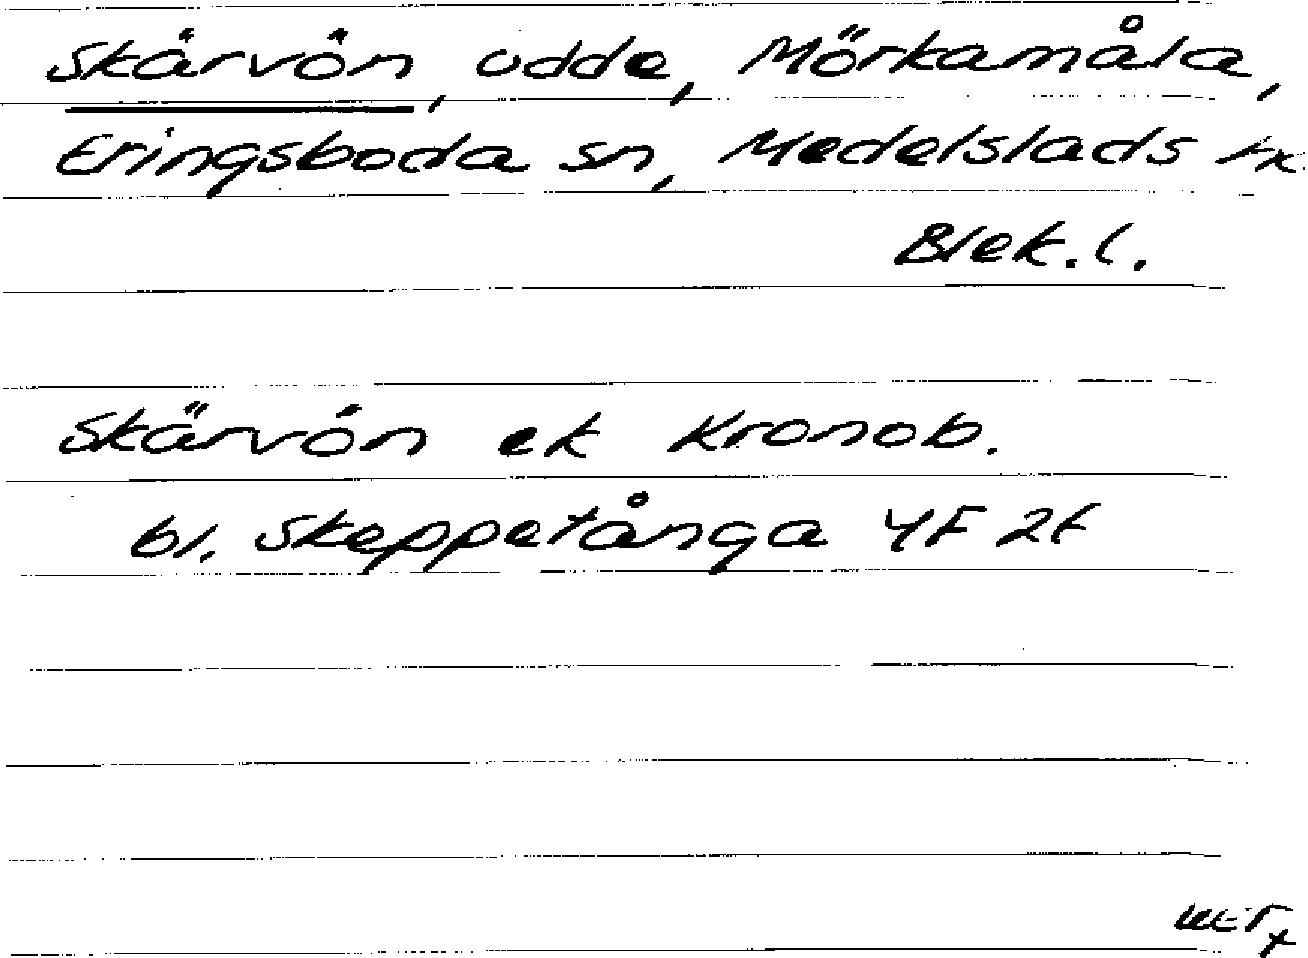 Skärvön, udde, Mörkamåla,
Eringsboda sn, Medelstads hx.
Blek. l.
Skärvön ek Kronob.
bl. Skeppetånga 4F 2f